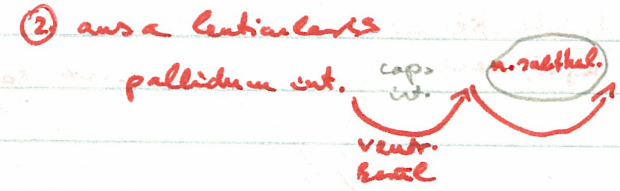 ② ansa lenticularis
pallidum int. caps. int. n. subthal.
ventr.